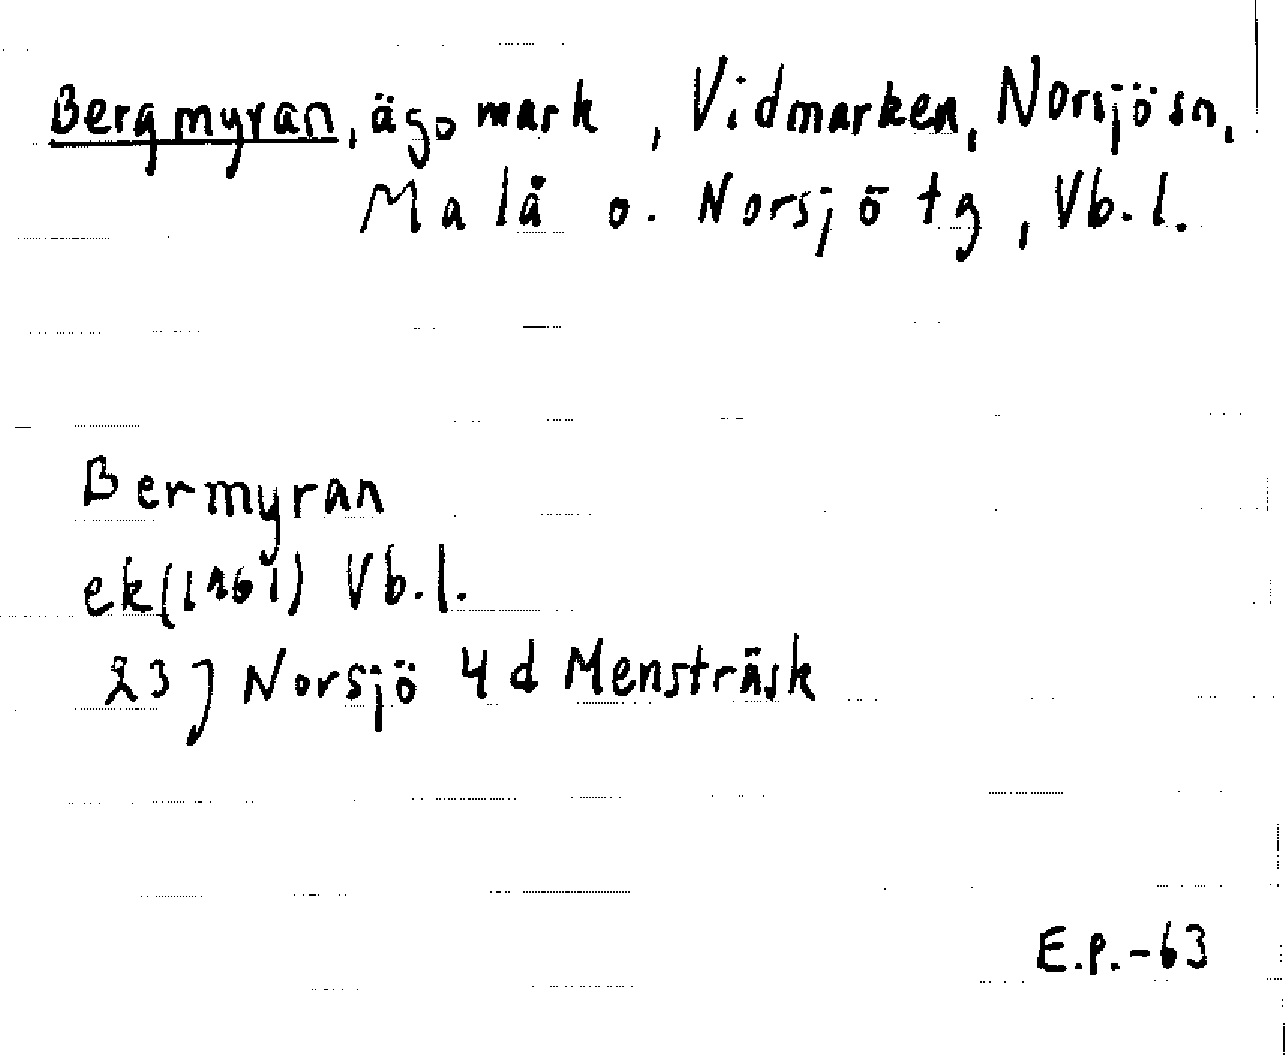 Bergmyran, ägomark, Vidmarken, Norsjösn,
Malå o. Norsjö tg, Vb.l.
Bermyran
ek(1961) Vb.l.
23 J Norsjö 4 d Mensträsk
E.P.-63